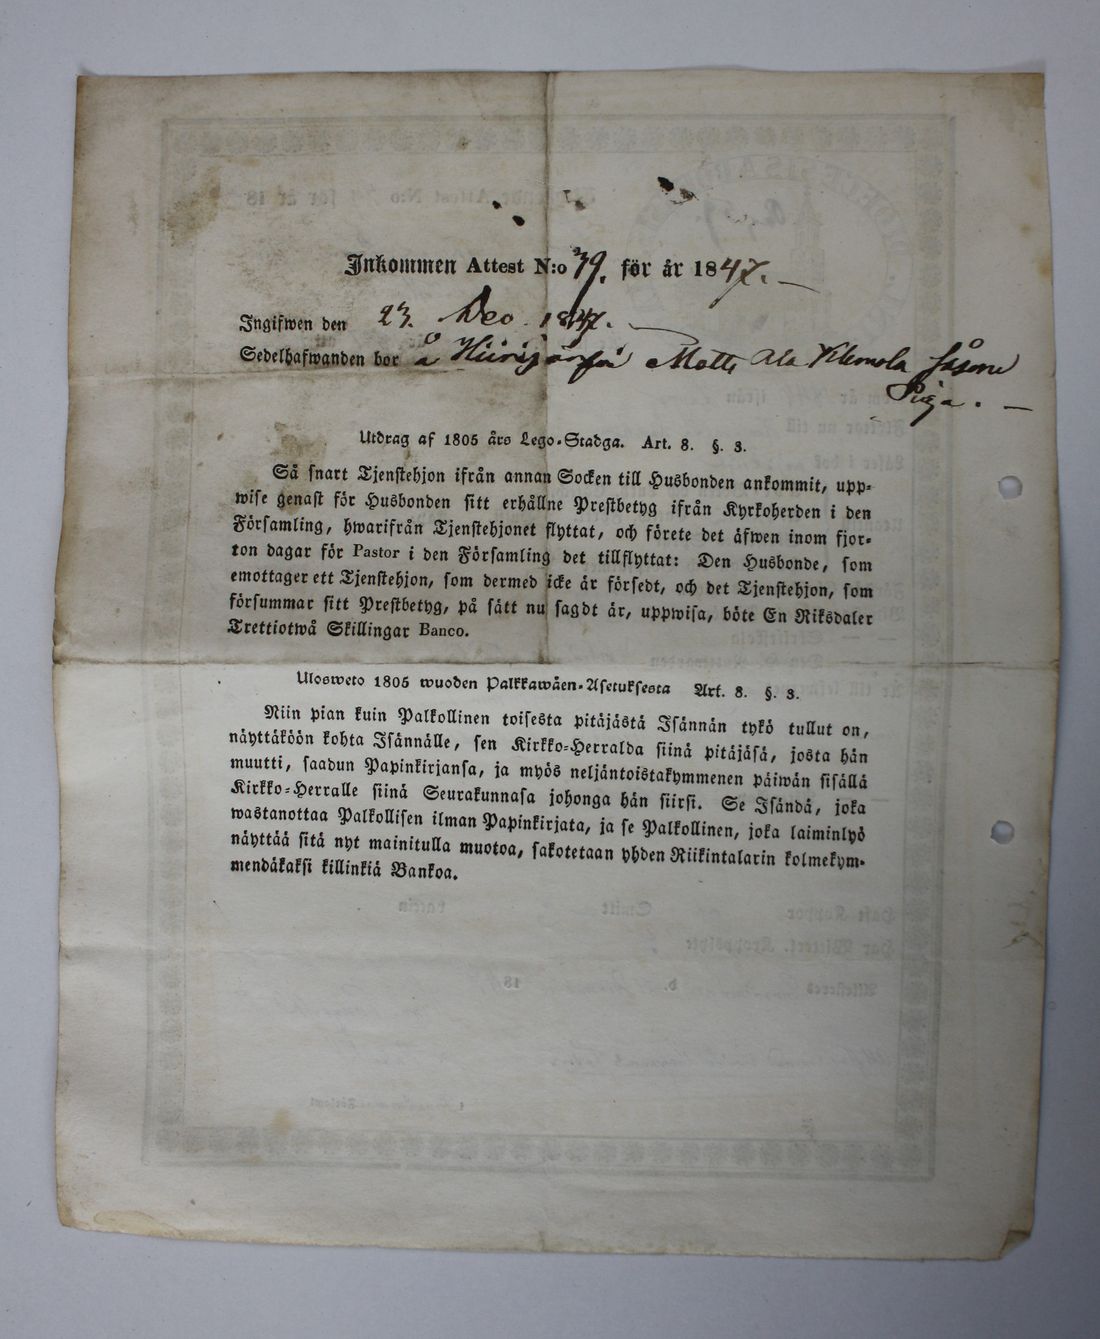 Inkommen Attest N:o 79. för år 1847.
Ingifwen den 23. Dec. 1847.
Sedelhafwanden bor å Matts Ala Klemola såsom
Piga.
Utdrag af 1805 års Lego-Stadga. Art. 8. §. 3.
Så snart Tjenstehjon ifrån annan Socken till Husbonden ankommit, upp-
wise genast för Husbonden sitt erhållne Prestbetyg ifrån Kyrkoherden i den
Församling, hwarifrån Tjenstehjonet flyttat, och förete det äfwen inom fjor-
ton dagar för Pastor i den Församling det tillflyttat: Den Husbonde, som
emottager ett Tjenstehjon, som dermed icke är försedt, och det Tjenstehjon, som
försummar sitt Prestbetyg, på sätt nu sagdt är, uppwisa, böte En Riksdaler
Trettiotwå Skillingar Banco.
Ulosweto 1805 wuoden Palkkawäen-Asetuksesta Art. 8. §. 3.
Niin pian kuin Palkollinen toisesta pitäjästä Isännän tykö tullut on,
näyttäköön kohta Isännälle, sen Kirkko-Herralda siinä pitäjäsä, josta hän
muutti, saadun Papinkirjansa, ja myös neljäntoistakymmenen päiwän sisällä
Kirkko-Herralle siinä Seurakunnasa johonga hän siirsi. Se Isändä, joka
wastanottaa Palkollisen ilman Papinkirjata, ja se Palkollinen, joka laiminlyö
näyttää sitä nyt mainitulla muotoa, sakotetaan yhden Riikintalarin kolmekym-
mendäkaksi killinkiä Bankoa.